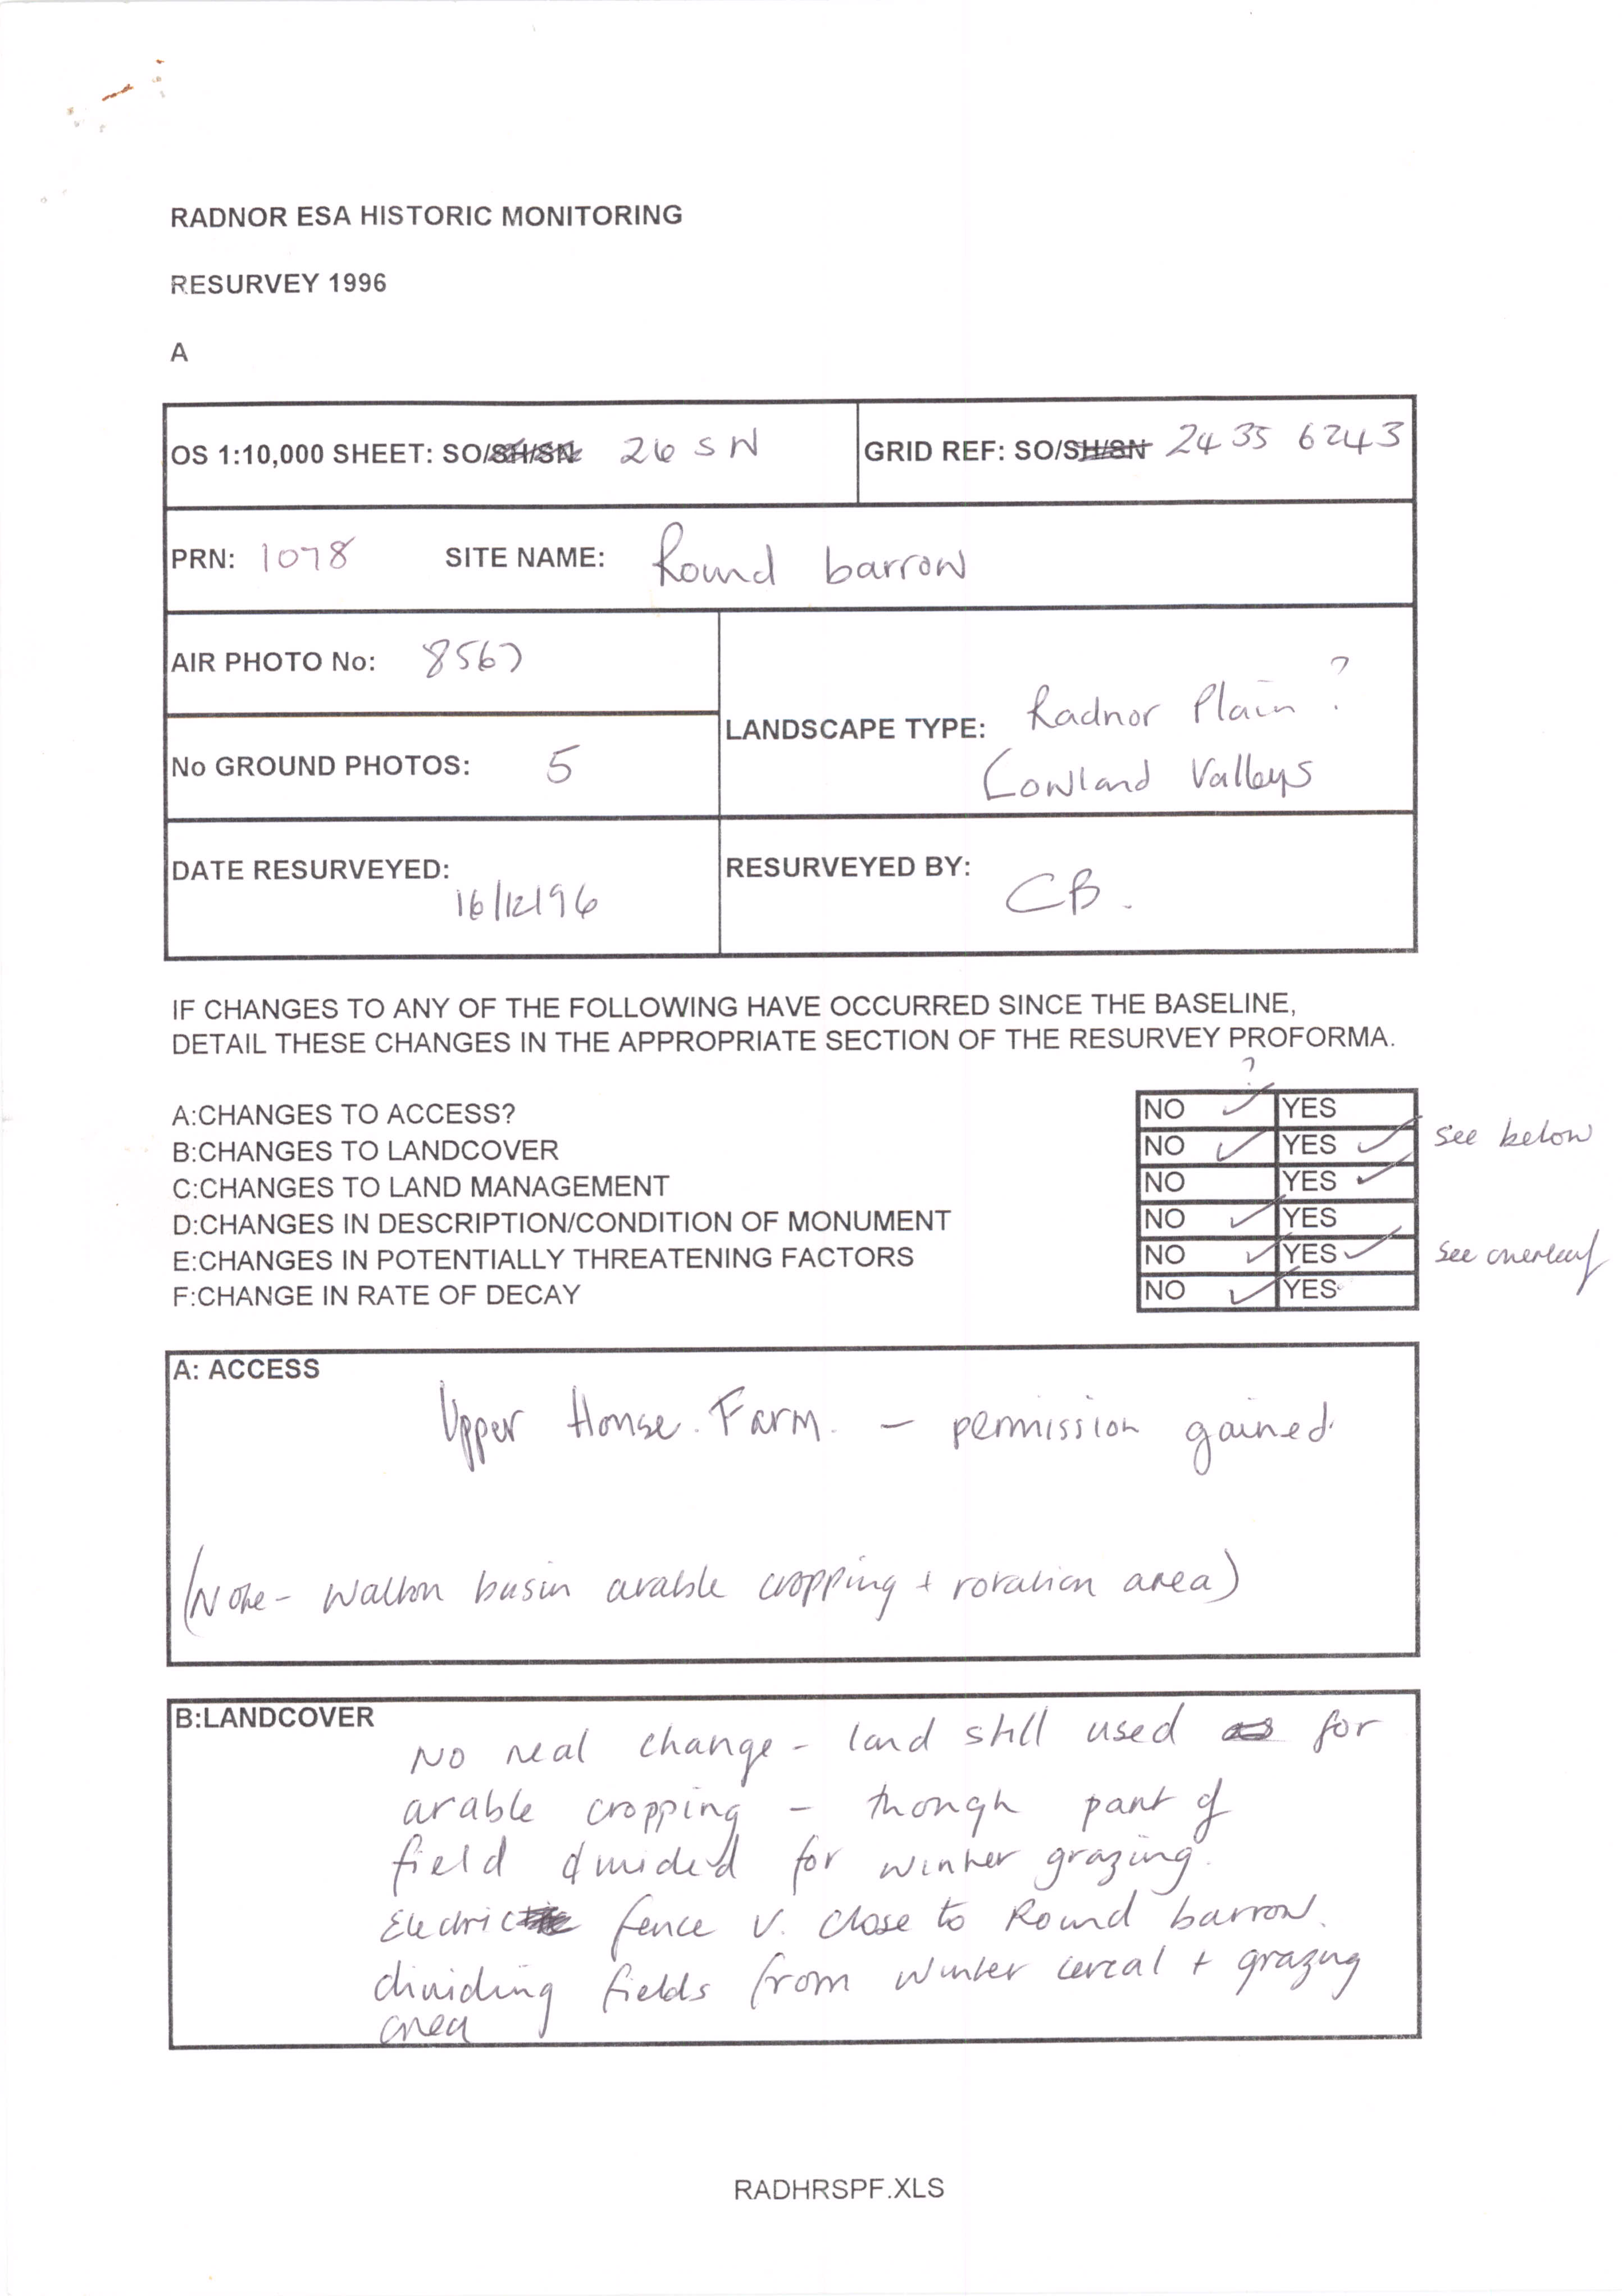 RADNOR ESA HISTORIC MONITORING
RESURVEY 1996
A
OS 1:10,000 SHEET: SO/SH/SN 26 SN
GRID REF: SO/SH/SN 2435 6243
PRN: 1078 SITE NAME: Round barrow
AIR PHOTO No: 8567
LANDSCAPE TYPE: Radnor Plain ?
Lowland Valleys
No GROUND PHOTOS: 5
DATE RESURVEYED: 16/12/96
RESURVEYED BY: CB.
IF CHANGES TO ANY OF THE FOLLOWING HAVE OCCURRED SINCE THE BASELINE,
DETAIL THESE CHANGES IN THE APPROPRIATE SECTION OF THE RESURVEY PROFORMA.
?
A:CHANGES TO ACCESS? NO ✓ YES
B:CHANGES TO LANDCOVER NO ✓ YES ✓ see below
C:CHANGES TO LAND MANAGEMENT NO YES ✓
D:CHANGES IN DESCRIPTION/CONDITION OF MONUMENT NO ✓ YES
E:CHANGES IN POTENTIALLY THREATENING FACTORS NO ✓ YES ✓ see overleaf
F:CHANGE IN RATE OF DECAY NO ✓ YES
A: ACCESS
Upper House Farm. - permission gained
(Note - Walton basin arable cropping + rotation area)
B:LANDCOVER
No real change - land still used as for
arable cropping - though part of
field divided for winter grazing.
Electric fence v. close to Round barrow.
dividing fields from winter cereal + grazing
area
RADHRSPF.XLS